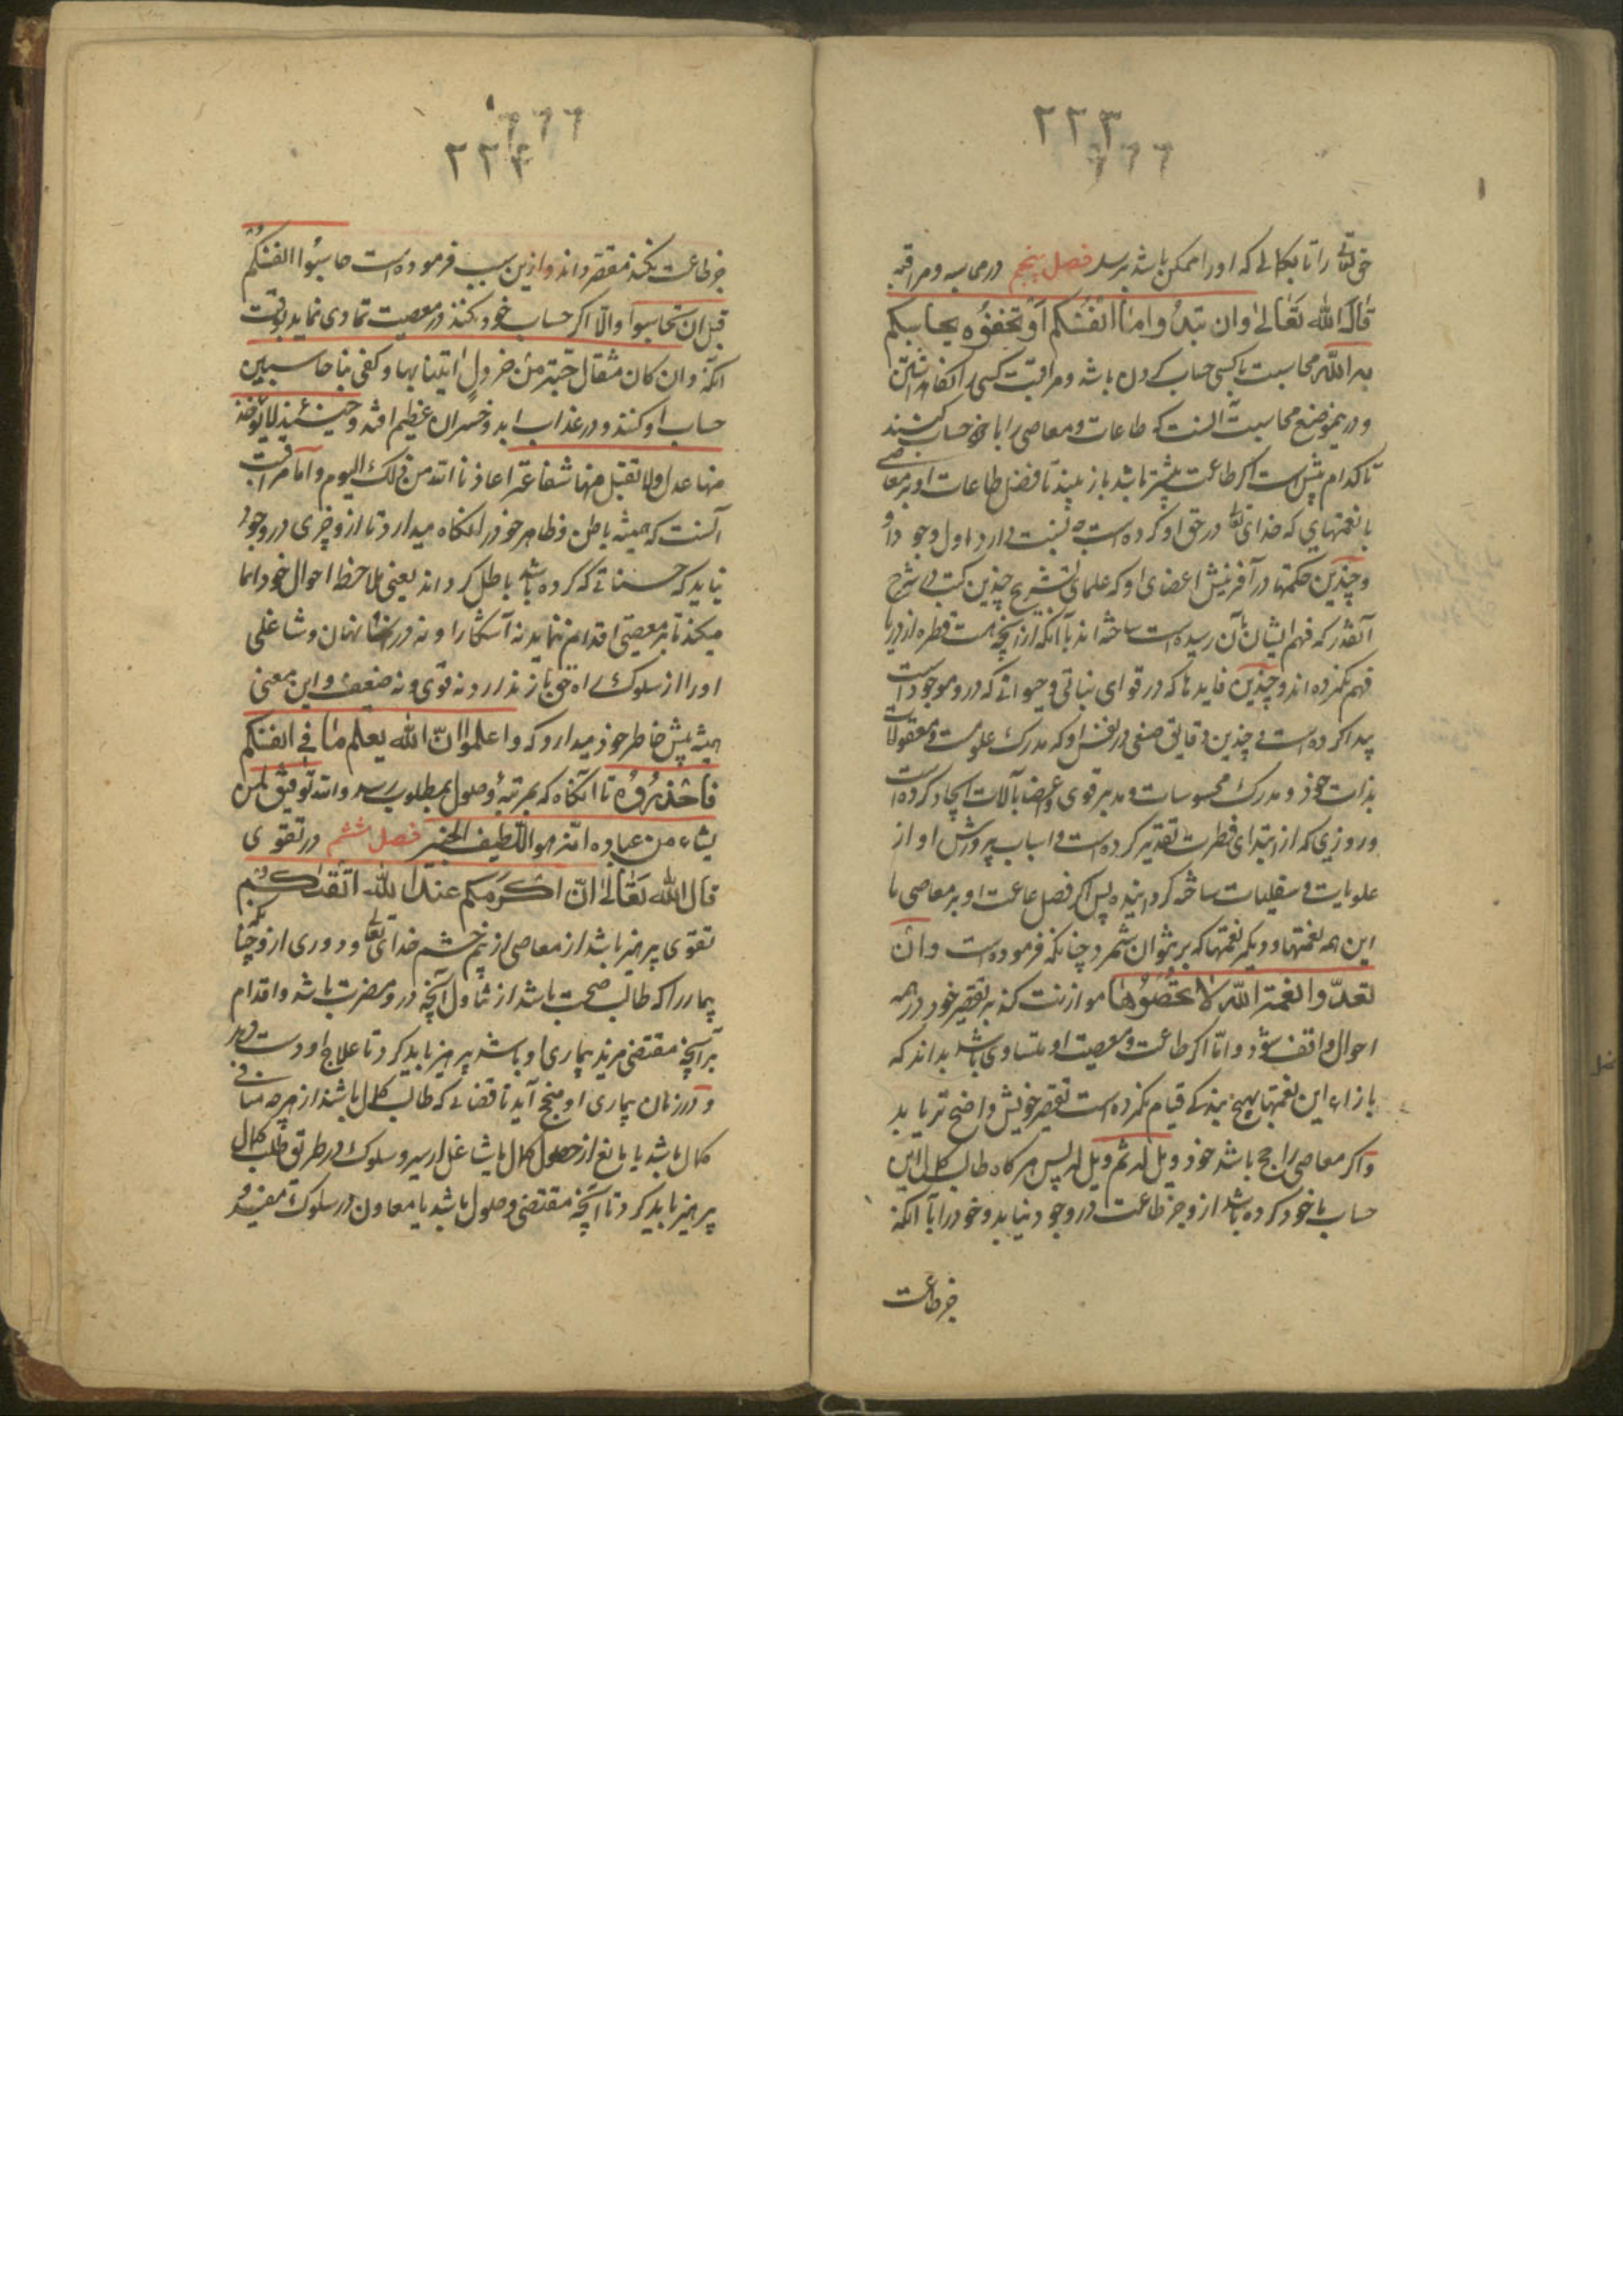 ٢٢٣
حق تعالی را تا بکمالی که او را ممکن باشد برسد فصل پنجم در محاسبه و مراقبه
قال الله تعالی وان تبدوا ما فی انفسکم او تخفوه یحاسبکم
به الله محاسبت با کسی حساب کردن باشد و مراقبت کسی را نگاه داشتن
و درین موضع محاسبت آنست که طاعات و معاصی را با خود حساب کند
تا کدام بیش است اگر طاعت بیشتر باشد باز بیند تا فضل طاعات او بر معاصی
با نعمتهایی که خدای تعالی در حق او کرده است چه نسبت دارد اول وجود داد
و چندین حکمتها در آفرینش اعضای او که علمای تشریح چندین کتب در شرح
آنقدر که فهم ایشان بآن رسیده است ساخته اند با آنکه از آنچه هست قطره از دریا
فهم نکرده اند و چندین فایدها که در قوای نباتی و حیوانی که درو موجود است
پیدا کرده است و چندین دقایق صنع در نفس او که مدرک علوم است و معقولات
بذات خود و مدرک محسوسات و مدبر قوی و اعضا بآلات ایجاد کرده است
و روزی که از ابتدای فطرت تقدیر کرده است و اسباب پرورش او از
علویات و سفلیات ساخته گردانیده پس اگر فضل طاعت او بر معاصی با
این همه نعمتها و دیگر نعمتها که بر نتوان شمرد چنانکه فرموده است وان
تعدوا نعمة الله لا تحصوها موازنت کند بر تقصیر خود در همه
احوال واقف شود و اما اگر طاعت و معصیت او متساوی باشد بداند که
بازاء این نعمتها بهیچ بندگی قیام نکرده است تقصیر خویش واضح تر یابد
و اگر معاصی راجح باشد خود ویل له ثم ویل له پس هرگاه طالب کمال این
حساب با خود کرده باشد ازو جز طاعت در وجود نیاید و خود را با آنکه
جز طاعت
٢٢٤
جز طاعت نکند مقصر داند و ازین سبب فرموده است حاسبوا انفسکم
قبل ان تحاسبوا و الا اگر حساب خود نکند در معصیت تمادی نماید بوقت
آنکه وان کان مثقال حبة من خردل اتینا بها وکفی بنا حاسبین
حساب او کنند و در عذاب ابد و خسران عظیم افتد و حینئذ لا یؤخذ
منها عدل ولا تقبل منها شفاعة اعاذنا الله من ذلک الیوم و اما مراقبت
آنست که همیشه باطن و ظاهر خود را نگاه میدارد تا ازو چیزی در وجود
نیاید که حسناتی که کرده باشد باطل گرداند یعنی ملاحظ احوال خود دایما
میکند تا بر معصیتی اقدام ننماید نه آشکارا و نه در نهان و شاغلی
او را از سلوک راه حق باز ندارد نه قوی و نه ضعیف و این معنی
همیشه پیش خاطر خود میدارد که واعلموا ان الله یعلم ما فی انفسکم
فاحذروه تا آنگاه که بمرتبهٔ وصول بمطلوب رسد والله توفیق لمن
یشاء من عباده انه هو اللطیف الخبیر فصل ششم در تقوی
قال الله تعالی ان اکرمکم عند الله اتقیکم
تقوی پرهیز باشد از معاصی از بیم خشم خدای تعالی و دوری ازو چنانکه
بیمار را که طالب صحت باشد از تناول آنچه درو مضرت باشد و اقدام
بر آنچه مقتضی مزید بیماری او باشد پرهیز باید کرد تا علاج او دست دهد
و درزمان بیماری او منجح آید ناقصانی که طالب کمال باشند از هرچه منافی
کمال باشد یا مانع از حصول کمال یا شاغل از سیر و سلوک در طریق طلب کمال
پرهیز باید کرد تا آنچه مقتضی وصول باشد یا معاون در سلوک مفید و